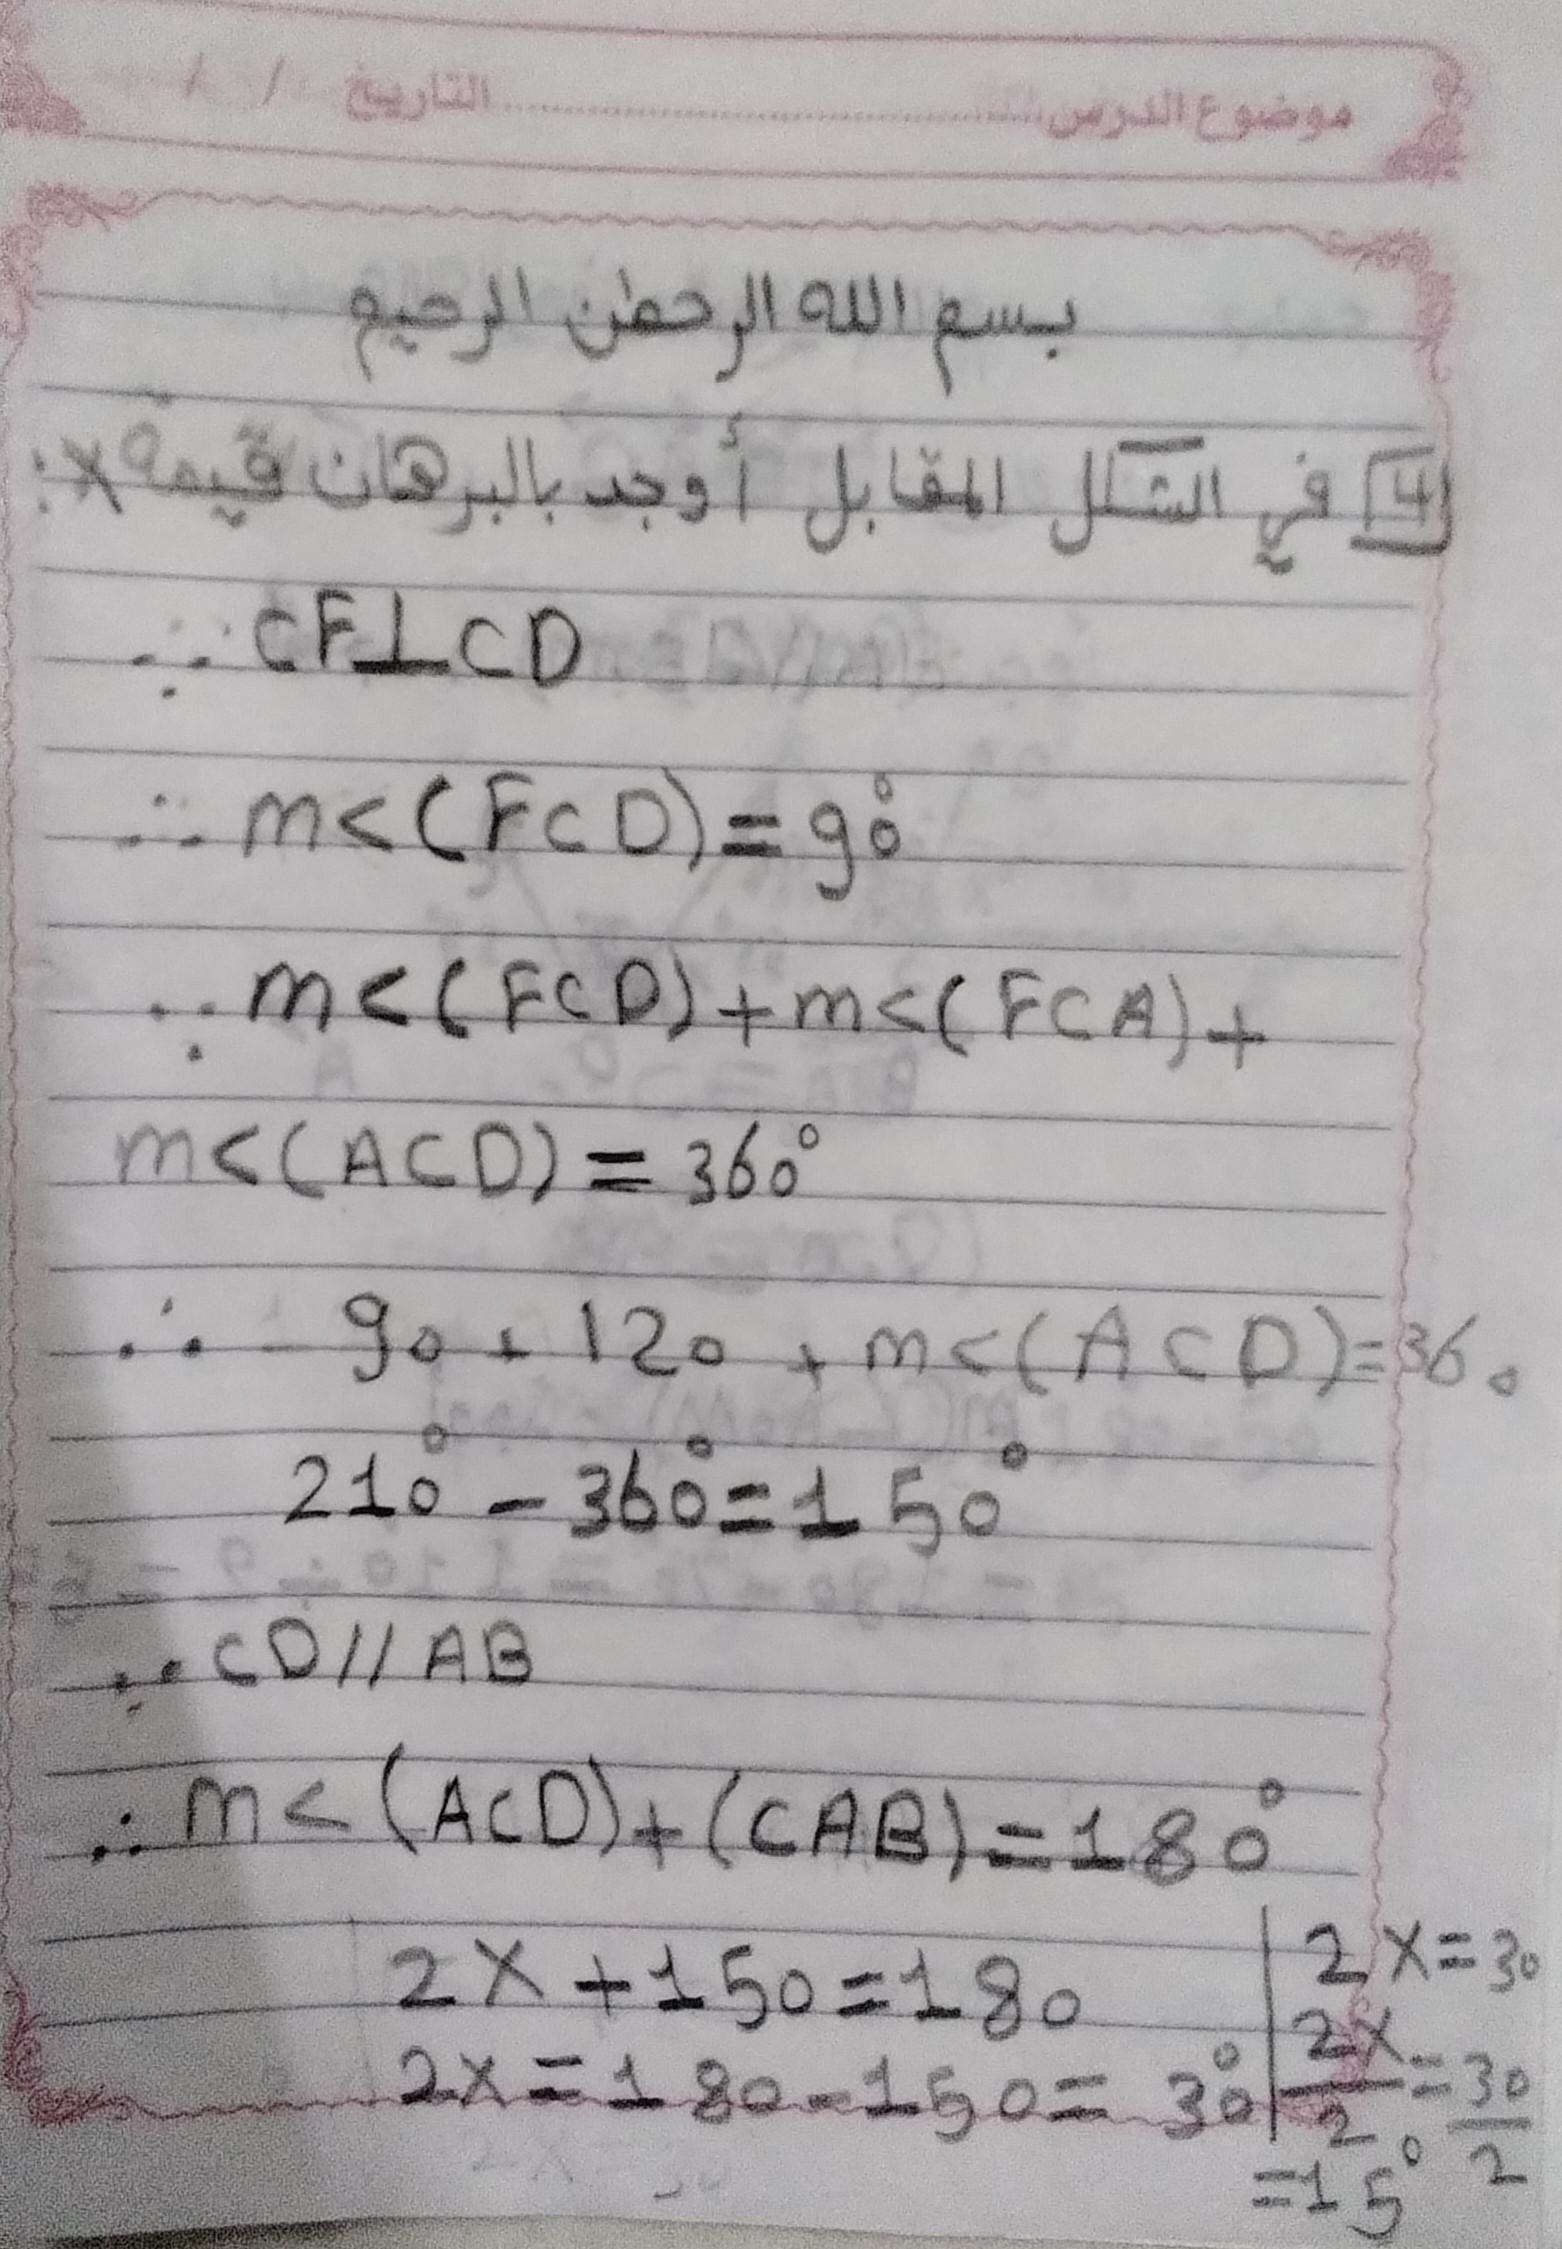 موضوع الدرس التاريخ / /
بسم الله الرحمٰن الرحيم
4 في الشكل المقابل أوجد بالبرهان قيمة x:
∵ CF⊥CD
∴ m<(FCD)=90°
∵ m<(FCD)+m<(FCA)+
m<(ACD)=360°
∴ 90+120+m<(ACD)=360
210°-360°=150°
∵ CD//AB
∴ m<(ACD)+(CAB)=180°
2x+150=180
2x=180-150=30°
2x=30
2x/2=30/2
=15°